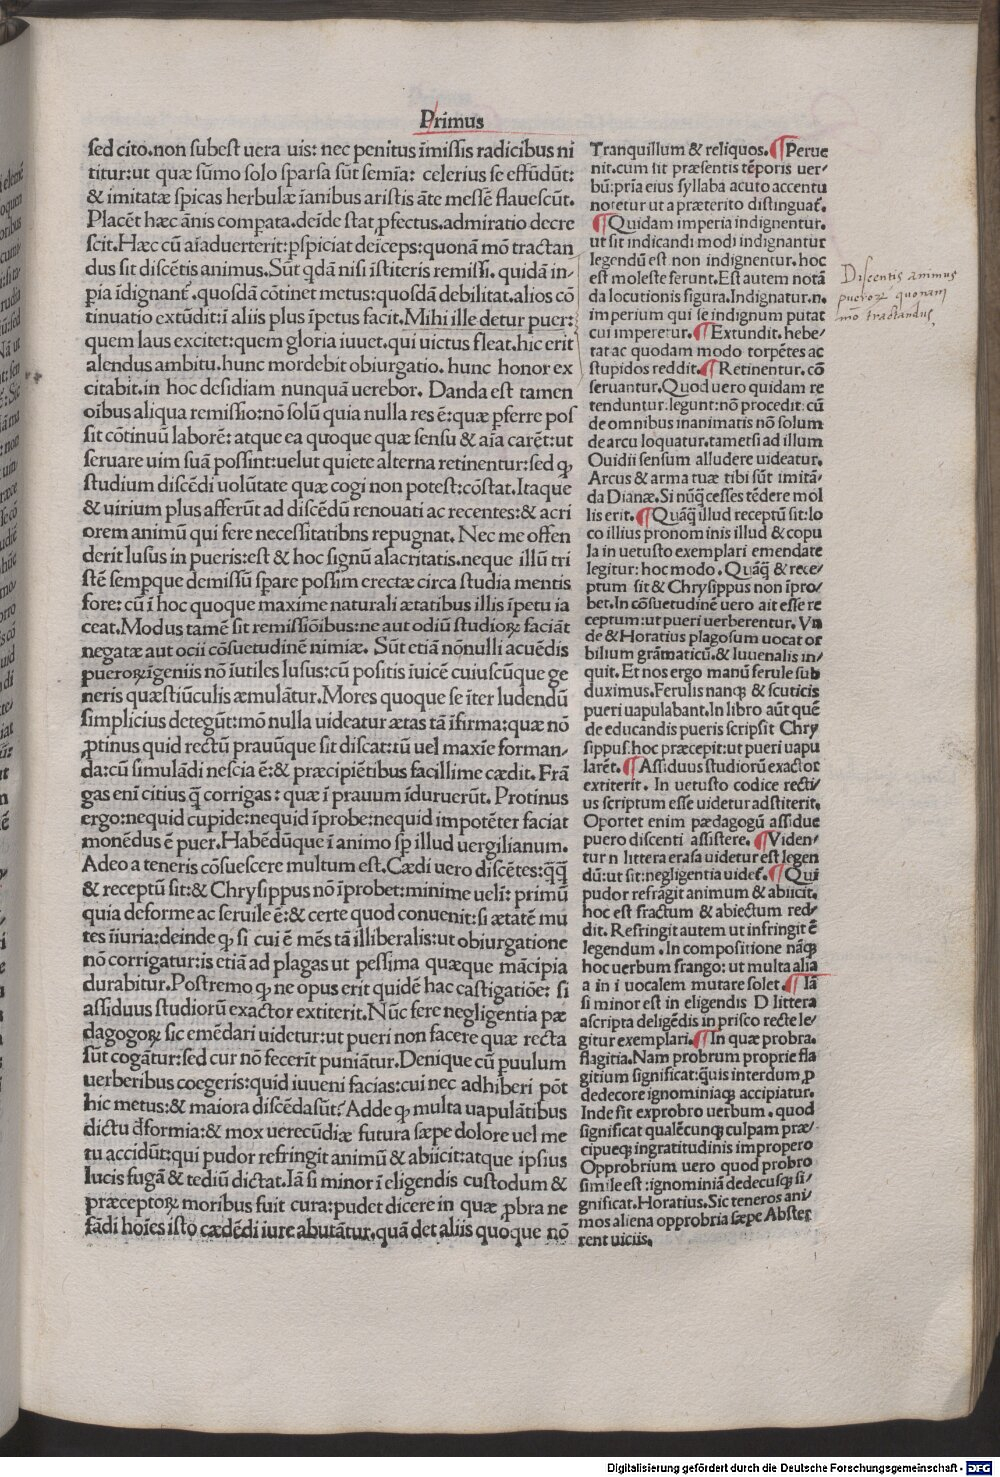 Primus
sed cito.non subest uera uis: nec penitus īmissis radicibus ni
titur:ut quæ sūmo solo sparsa sūt semīa: celerius se effūdūt:
& imitatæ spicas herbulæ īanibus aristis āte messē flauescūt.
Placēt hæc ānis compata.deīde stat ꝓfectus.admiratio decre
scit.Hæc cū aīaduerterit:pspiciat deīceps:quonā mō tractan
dus sit discētis animus.Sūt qdā nisi īstiteris remissi.quidā in/
pīa īdignant̄.quosdā cōtinet metus:quosdā debilitat.alios cō
tinuatio extūdit:ī aliis plus īpetus facit.Mihi ille detur puer:
quem laus excitet:quem gloria iuuet.qui uictus fleat.hic erit
alendus ambitu.hunc mordebit obiurgatio. hunc honor ex
citabit.in hoc desidiam nunquā uerebor. Danda est tamen
oībus aliqua remissio:nō solū quia nulla res ē:quæ pferre pos
sit cōtinuū laborē: atque ea quoque quæ sensu & aīa carēt:ut
seruare uim suā possint:uelut quiete alterna retinentur:sed ꝙ
studium discēdi uolūtate quæ cogi non potest:cōstat.Itaque
& uirium plus afferūt ad discēdū renouati ac recentes:& acri
orem animū qui fere necessitatibns repugnat. Nec me offen
derit lusus in pueris:est & hoc signū alacritatis.neque illū tri
stē sempque demissū spare possim erectæ circa studia mentis
fore: cū ī hoc quoque maxime naturali ætatibus illis īpetu ia
ceat.Modus tamē sit remissiōibus:ne aut odiū studioꝝ faciāt
negatæ aut ocii cōsuetudinē nimiæ. Sūt etiā nōnulli acuēdis
pueroꝝ īgeniis nō īutiles lusus:cū positis īuicē cuiuscūque ge
neris quæstiūculis æmulātur.Mores quoque se īter ludendū
simplicius detegūt:mō nulla uideatur ætas tā īfirma:quæ nō
ꝓtinus quid rectū prauūque sit discat:tū uel maxīe forman/
da:cū simulādi nescia ē:& præcipiētibus facillime cædit. Frā
gas enī citius q̄ corrigas: quæ ī prauum īduruerūt. Protinus
ergo:nequid cupide:nequid īprobe:nequid impotēter faciat
monēdus ē puer.Habēdūque ī animo sp illud uergilianum.
Adeo a teneris cōsuescere multum est.Cædi uero discētes:q̄q̄
& receptū sit:& Chrysippus nō īprobet:minime ueli: primū
quia deforme ac seruile ē:& certe quod conuenit:si ætatē mu
tes īiuria:deinde ꝙ si cui ē mēs tā illiberalis:ut obiurgatione
nō corrigatur:is etiā ad plagas ut pessima quæque mācipia
durabitur.Postremo ꝙ ne opus erit quidē hac castigatiōe: si
assiduus studiorū exactor extiterit.Nūc fere negligentia pæ
dagogoꝝ sic emēdari uidetur:ut pueri non facere quæ recta
sūt cogātur:sed cur nō fecerit puniātur.Denique cū puulum
uerberibus coegeris:quid iuueni facias:cui nec adhiberi pōt
hic metus:& maiora discēda sūt? Adde ꝙ multa uapulātibus
dictu d̄formia:& mox uerecūdiæ futura sæpe dolore uel me
tu accidūt:qui pudor refringit animū & abiicit:atque ipsius
lucis fugā & tediū dictat.Iā si minor ī eligendis custodum &
præceptoꝝ moribus fuit cura:pudet dicere in quæ ꝓbra ne
fādi hoīes isto cædēdi iure abutātur.quā det aliis quoque nō
Tranquillum & reliquos. ¶ Perue
nit.cum sit præsentis tēporis uer/
bū:pria eius syllaba acuto accentu
notetur ut a præterito distinguat̄.
¶ Quidam imperia indignentur.
ut sit indicandi modi indignantur
legendū est non indignentur. hoc
est moleste ferunt.Est autem notā
da locutionis figura.Indignatur.n.
imperium qui se indignum putat
cui imperetur. ¶ Extundit. hebe/
tat ac quodam modo torpētes ac
stupidos reddit. ¶ Retinentur. cō
seruantur.Quod uero quidam re
tenduntur:legunt:nō procedit: cū
de omnibus inanimatis nō solum
de arcu loquatur.tametsi ad illum
Ouidii sensum alludere uideatur.
Arcus & arma tuæ tibi sūt imitā/
da Dianæ.Si nūq̄ cesses tēdere mol
lis erit. ¶ Quāq̄ illud receptū sit:lo
co illius pronominis illud & copu
la in uetusto exemplari emendate
legitur: hoc modo. Quāq̄ & rece/
ptum sit & Chrysippus non īpro/
bet.In cōsuetudinē uero ait esse re
ceptum:ut pueri uerberentur. Vn
de & Horatius plagosum uocat or
bilium grāmaticū.& Iuuenalis in/
quit. Et nos ergo manū ferule sub
duximus.Ferulis nanqꝫ & scuticis
pueri uapulabant.In libro aūt quē
de educandis pueris scripsit Chry
sippus.hoc præcepit:ut pueri uapu
larēt. ¶ Assiduus studiorū exactor
extiterit. In uetusto codice recti/
us scriptum esse uidetur adstiterit.
Oportet enim pædagogū assidue
puero discenti assistere. ¶ Viden/
tur n littera erasa uidetur est legen
dū:ut sit:negligentia uidet̄. ¶ Qui
pudor refrāgit animum & abiicit.
hoc est fractum & abiectum red/
dit. Refringit autem ut infringit ē
legendum. In compositione nāqꝫ
hoc uerbum frango: ut multa alia
a in i uocalem mutare solet. ¶ Iā
si minor est in eligendis D littera
ascripta deligēdis in prisco recte le/
gitur exemplari. ¶ In quæ probra.
flagitia.Nam probrum proprie fla
gitium significat:q̄uis interdum ꝓ
dedecore ignominiaqꝫ accipiatur.
Inde fit exprobro uerbum. quod
significat qualēcunqꝫ culpam præ/
cipueqꝫ ingratitudinis impropero
Opprobrium uero quod probro
simile est:ignominiā dedecusqꝫ si/
gnificat.Horatius.Sic teneros ani/
mos aliena opprobria sæpe Abster
rent uiciis.
Discentis animus
pueroꝝ quonam
mō tractandus.
Digitalisierung gefördert durch die Deutsche Forschungsgemeinschaft - DFG